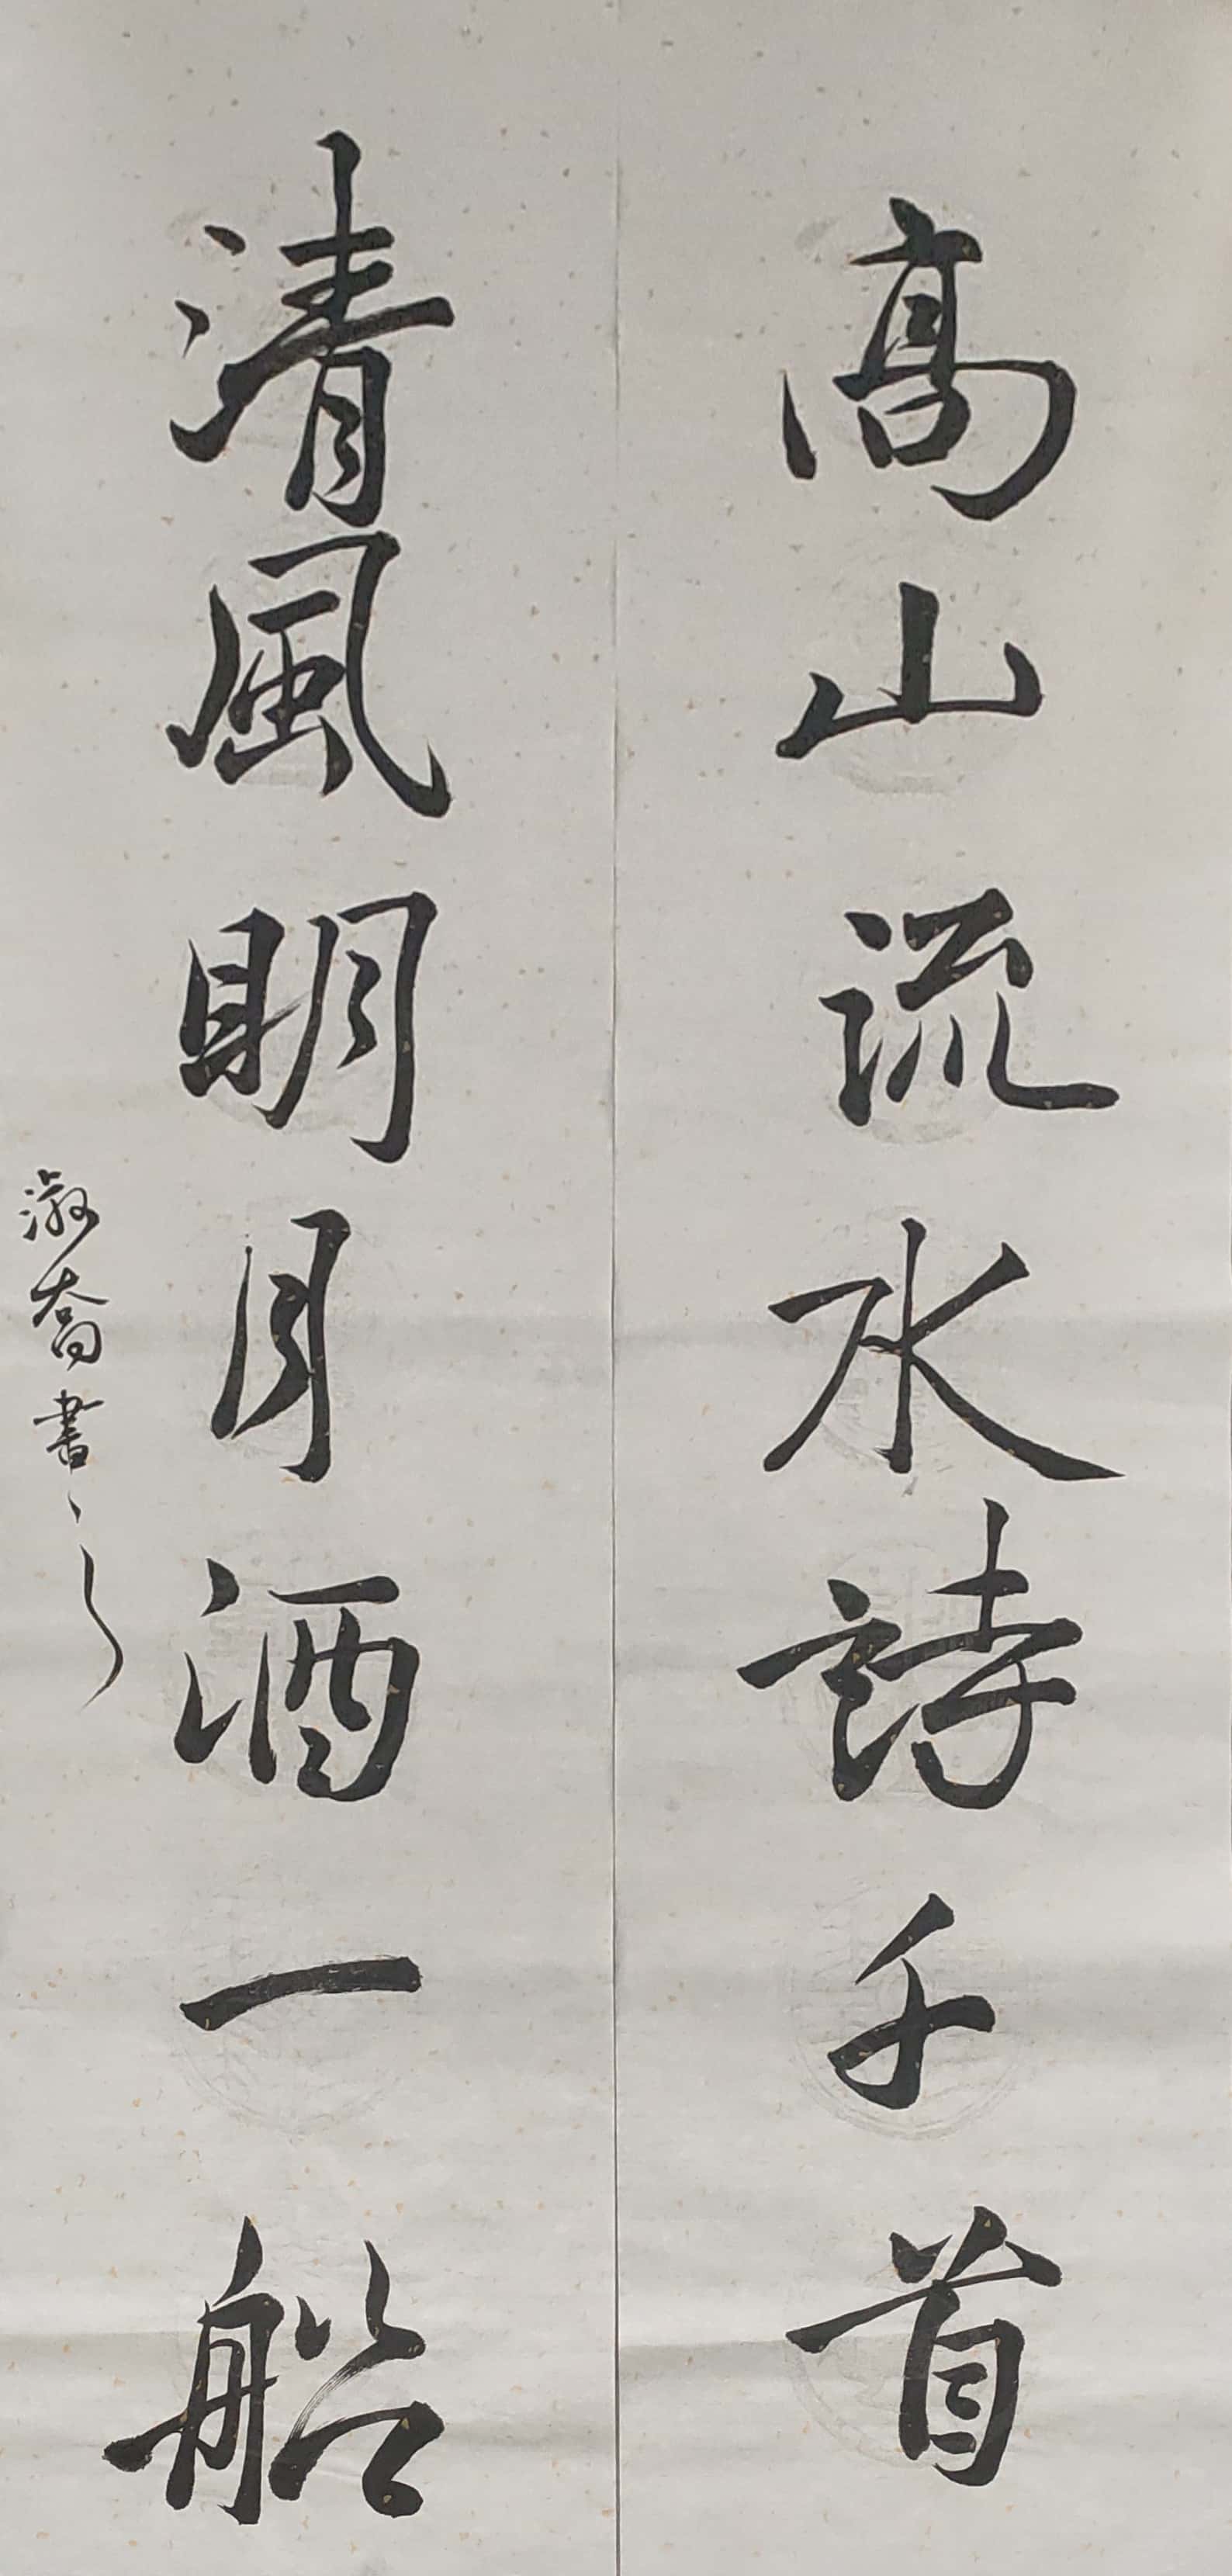 高山流水詩千首
清風明月酒一船
淑喬書之